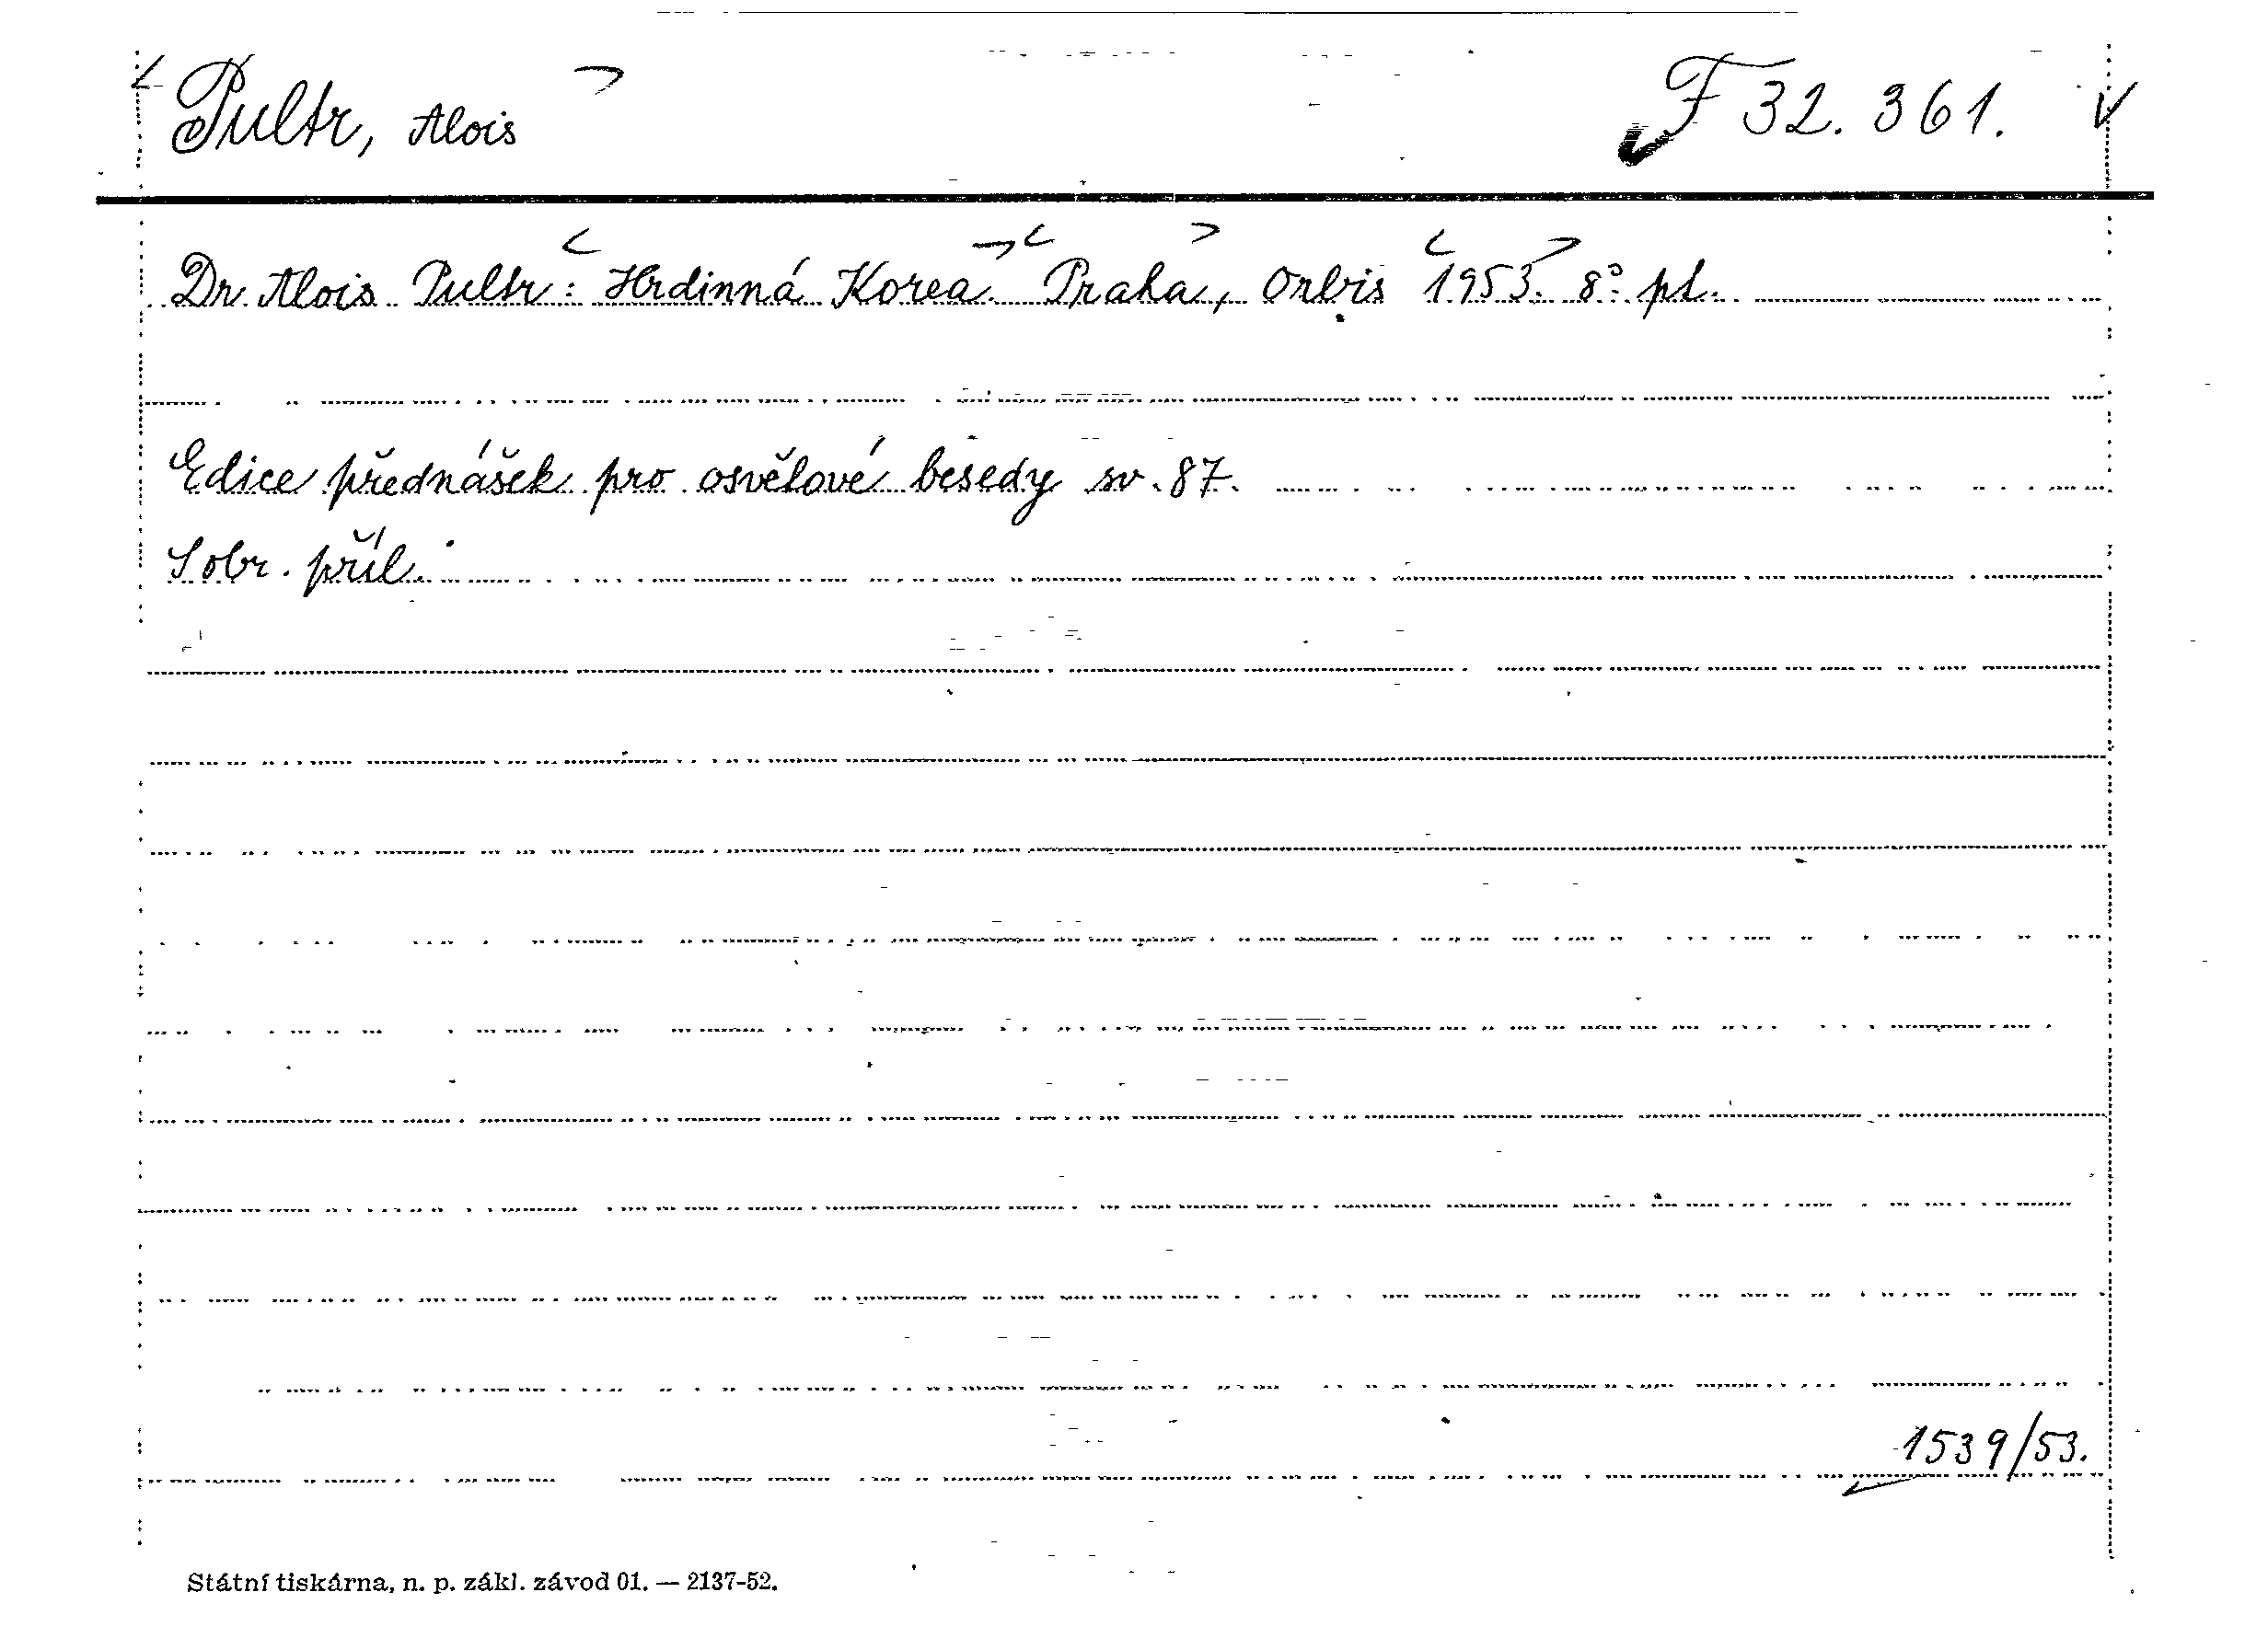 Pultr, Alois F 32.361.
Dr. Alois Pultr: Hrdinná Korea. Praha, Orbis 1953. 8° pl.
Edice přednášek pro osvětové besedy sv. 87.
S obr. příl.
1539/53.
Státní tiskárna, n. p. zákl. závod 01. — 2137-52.